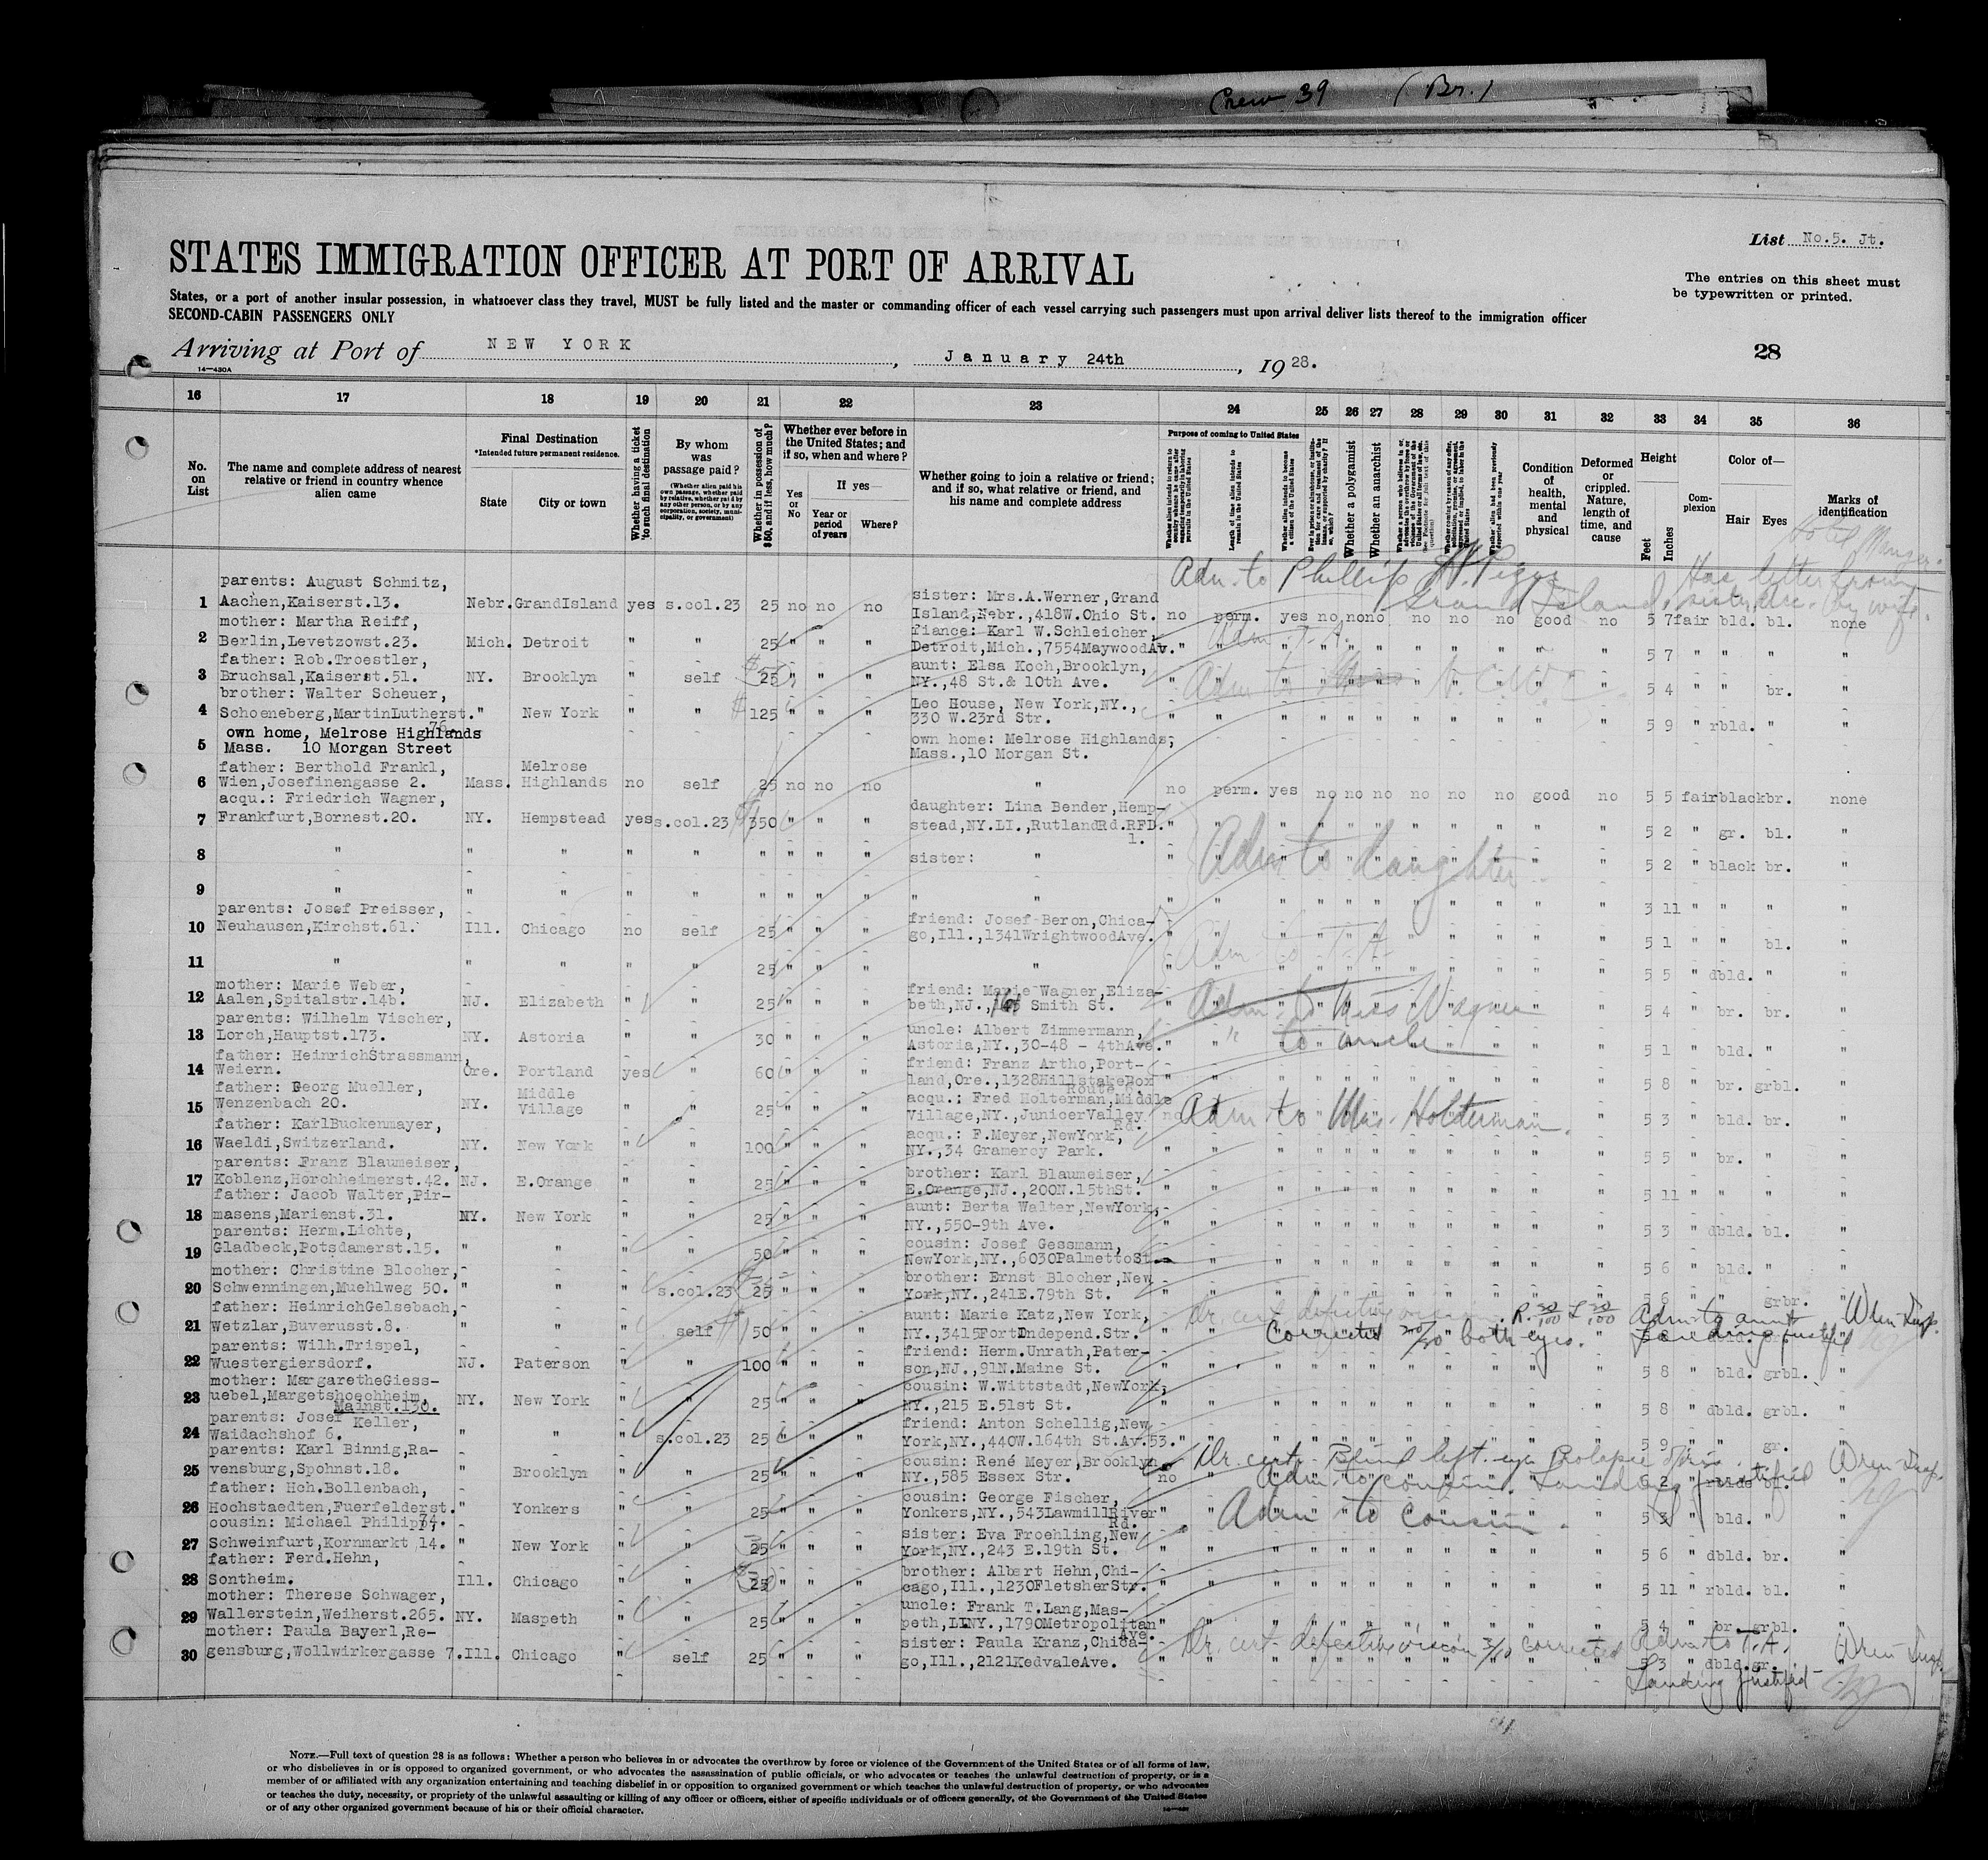 Crew 39 (Br.)
List No.5. Jt.
STATES IMMIGRATION OFFICER AT PORT OF ARRIVAL
The entries on this sheet must
be typewritten or printed.
States, or a port of another insular possession, in whatsoever class they travel, MUST be fully listed and the master or commanding officer of each vessel carrying such passengers must upon arrival deliver lists thereof to the immigration officer
SECOND-CABIN PASSENGERS ONLY
Arriving at Port of NEW YORK, January 24th, 1928.
28
14—430A
16 17 18 19 20 21 22 23 24 25 26 27 28 29 30 31 32 33 34 35 36
No. on List
The name and complete address of nearest relative or friend in country whence alien came
Final Destination
*Intended future permanent residence.
State City or town
Whether having a ticket to such final destination
By whom was passage paid?
(Whether alien paid his own passage, whether paid by relative, whether paid by any other person, or by any corporation, society, municipality, or government)
Whether in possession of $50, and if less, how much?
Whether ever before in the United States; and if so, when and where?
Yes or No
If yes—
Year or period of years
Where?
Whether going to join a relative or friend; and if so, what relative or friend, and his name and complete address
Purpose of coming to United States
Length of time alien intends to remain in the United States
Whether alien intends to become a citizen of the United States
Whether a polygamist
Whether an anarchist
Condition of health, mental and physical
Deformed or crippled. Nature, length of time, and cause
Height
Feet Inches
Complexion
Color of—
Hair Eyes
Marks of identification
Adm. to Phillip
Grand Island
Has letter from
parents: August Schmitz,
1 Aachen,Kaiserst.13. Nebr. GrandIsland yes s.col.23 25 no no no sister: Mrs.A.Werner,Grand
Island,Nebr.,418W.Ohio St. no perm. yes no no no no no no good no 5 7 fair bld. bl. none
mother: Martha Reiff,
2 Berlin,Levetzowst.23. Mich. Detroit " " 25 " " " fiance: Karl W.Schleicher,
Detroit,Mich.,7554MaywoodAv. 5 7 " " " "
Adm. T.A.
father: Rob.Troestler,
3 Bruchsal,Kaiserst.51. NY. Brooklyn " self 25 " " " aunt: Elsa Koch,Brooklyn,
NY.,48 St.& 10th Ave. 5 4 " " br. "
brother: Walter Scheuer,
4 Schoeneberg,MartinLutherst. " New York " " 125 " " " Leo House, New York,NY.,
76.
330 W.23rd Str. 5 9 " rbld. " "
own home, Melrose Highlands
5 Mass. 10 Morgan Street own home: Melrose Highlands,
Mass.,10 Morgan St.
father: Berthold Frankl, Melrose
6 Wien,Josefinengasse 2. Mass. Highlands no self 25 no no no " no perm. yes no no no no no no good no 5 5 fair black br. none
acqu.: Friedrich Wagner,
7 Frankfurt,Bornest.20. NY. Hempstead yes s.col.23 350 " " " daughter: Lina Bender,Hemp-
stead,NY.LI.,RutlandRd.RFD. 5 2 " gr. bl. "
1.
8 " " " " " " " " " sister: " 5 2 " black br. "
Adm to daughter
9 " " " " " " " " " " 3 11 " " " "
parents: Josef Preisser,
10 Neuhausen,Kirchst.61. Ill. Chicago no self 25 " " " friend: Josef Beron,Chica-
go,Ill.,1341WrightwoodAve. 5 1 " " bl. "
Adm. to T.A.
11 " " " " " 25 " " " " 5 5 " dbld. " "
mother: Marie Weber,
12 Aalen,Spitalstr.14b. NJ. Elizabeth " " 25 " " " friend: Marie Wagner,Eliza-
beth,NJ., Smith St. 5 4 " br. br. "
Adm. to Miss Wagner
parents: Wilhelm Vischer,
13 Lorch,Hauptst.173. NY. Astoria " " 30 " " " uncle: Albert Zimmermann,
Astoria,NY.,30-48 - 4thAve. 5 1 " bld. " "
" to uncle
father: HeinrichStrassmann,
14 Weiern. Ore. Portland yes " 60 " " " friend: Franz Artho,Port-
land,Ore.,1328HillstakeBox 5 8 " br. grbl. "
father: Georg Mueller, Middle
15 Wenzenbach 20. NY. Village " " 25 " " " acqu.: Fred Holterman,Middle
Village,NY.,JunicerValley 5 3 " bld. br. "
Rd.
Adm. to Mrs. Holderman.
father: KarlBuckenmayer,
16 Waeldi,Switzerland. NY. New York " " 100 " " " acqu.: F.Meyer,NewYork,
NY.,34 Gramercy Park. 5 5 " br. " "
parents: Franz Blaumeiser,
17 Koblenz,Horchheimerst.42. NJ. E.Orange " " 25 " " " brother: Karl Blaumeiser,
E.Orange,NJ.,200N.15thSt. 5 11 " " " "
father: Jacob Walter,Pir-
18 masens,Marienst.31. NY. New York " " 25 " " " aunt: Berta Walter,NewYork,
NY.,550-9th Ave. 5 3 " dbld. bl. "
parents: Herm.Lichte,
19 Gladbeck,Potsdamerst.15. " " " " 50 " " " cousin: Josef Gessmann,
NewYork,NY.,6030PalmettoSt. 5 6 " bld. " "
mother: Christine Blocher,
20 Schwenningen,Muehlweg 50. " " " s.col.23 25 " " " brother: Ernst Blocher,New
York,NY.,241E.79th St. 5 6 " " grbr. "
father: HeinrichGelsebach,
21 Wetzlar,Buverusst.8. " " " self 50 " " " aunt: Marie Katz,New York,
NY.,3415FortIndepend.Str.
Dr. cert. defective vision R. 20/100 L 20/100 Adm. to aunt
Corrected 20/20 both eyes. Landing justified
parents: Wilh.Trispel,
22 Wuestergiersdorf. NJ. Paterson " " 100 " " " friend: Herm.Unrath,Pater-
son,NJ.,91N.Maine St. 5 8 " bld. grbl. "
mother: MargaretheGiess-
23 uebel,Margetshoechheim, NY. New York " " 25 " " " cousin: W.Wittstadt,NewYork,
Mainst.130.
NY.,215 E.51st St. 5 8 " dbld. grbl. "
parents: Josef Keller,
24 Waidachshof 6. " " " s.col.23 25 " " " friend: Anton Schellig,New
York,NY.,440W.164th St.Av.53. 5 9 " " gr. "
parents: Karl Binnig,Ra-
25 vensburg,Spohnst.18. " Brooklyn " " 25 " " " cousin: René Meyer,Brooklyn,
NY.,585 Essex Str. no 6 2 bl. "
Dr. cert. Blind left eye Prolapse of iris
Adm. to cousin. Landing justified
father: Hch.Bollenbach,
26 Hochstaedten,Fuerfelderst. " Yonkers " " 25 " " " cousin: George Fischer,
74.
Yonkers,NY.,543LawmillRiver 5 " bld. " "
Rd.
Adm to cousin.
cousin: Michael Philipp,
27 Schweinfurt,Kornmarkt 14. " New York " " 25 " " " sister: Eva Froehling,New
York,NY.,243 E.19th St. 5 6 " dbld. br. "
father: Ferd.Hehn,
28 Sontheim. Ill. Chicago " " 25 " " " brother: Albert Hehn,Chi-
cago,Ill.,1230FletsherStr. 5 11 " rbld. bl. "
mother: Therese Schwager,
29 Wallerstein,Weiherst.265. NY. Maspeth " " 25 " " " uncle: Frank T.Lang,Mas-
peth,LINY.,1790Metropolitan 5 4 " br. grbl. "
Ave.
mother: Paula Bayerl,Re-
30 gensburg,Wollwirkergasse 7. Ill. Chicago " self 25 " " " sister: Paula Kranz,Chica-
go,Ill.,2121KedvaleAve. 5 3 " dbld. gr. "
Dr. cert. defective vision corrected Adm. to T.A.
Landing justified
NOTE.—Full text of question 28 is as follows: Whether a person who believes in or advocates the overthrow by force or violence of the Government of the United States or of all forms of law,
or who disbelieves in or is opposed to organized government, or who advocates the assassination of public officials, or who advocates or teaches the unlawful destruction of property, or is a
member of or affiliated with any organization entertaining and teaching disbelief in or opposition to organized government or which teaches the unlawful destruction of property, or who advocates
or teaches the duty, necessity, or propriety of the unlawful assaulting or killing of any officer or officers, either of specific individuals or of officers generally, of the Government of the United States
or of any other organized government because of his or their official character.